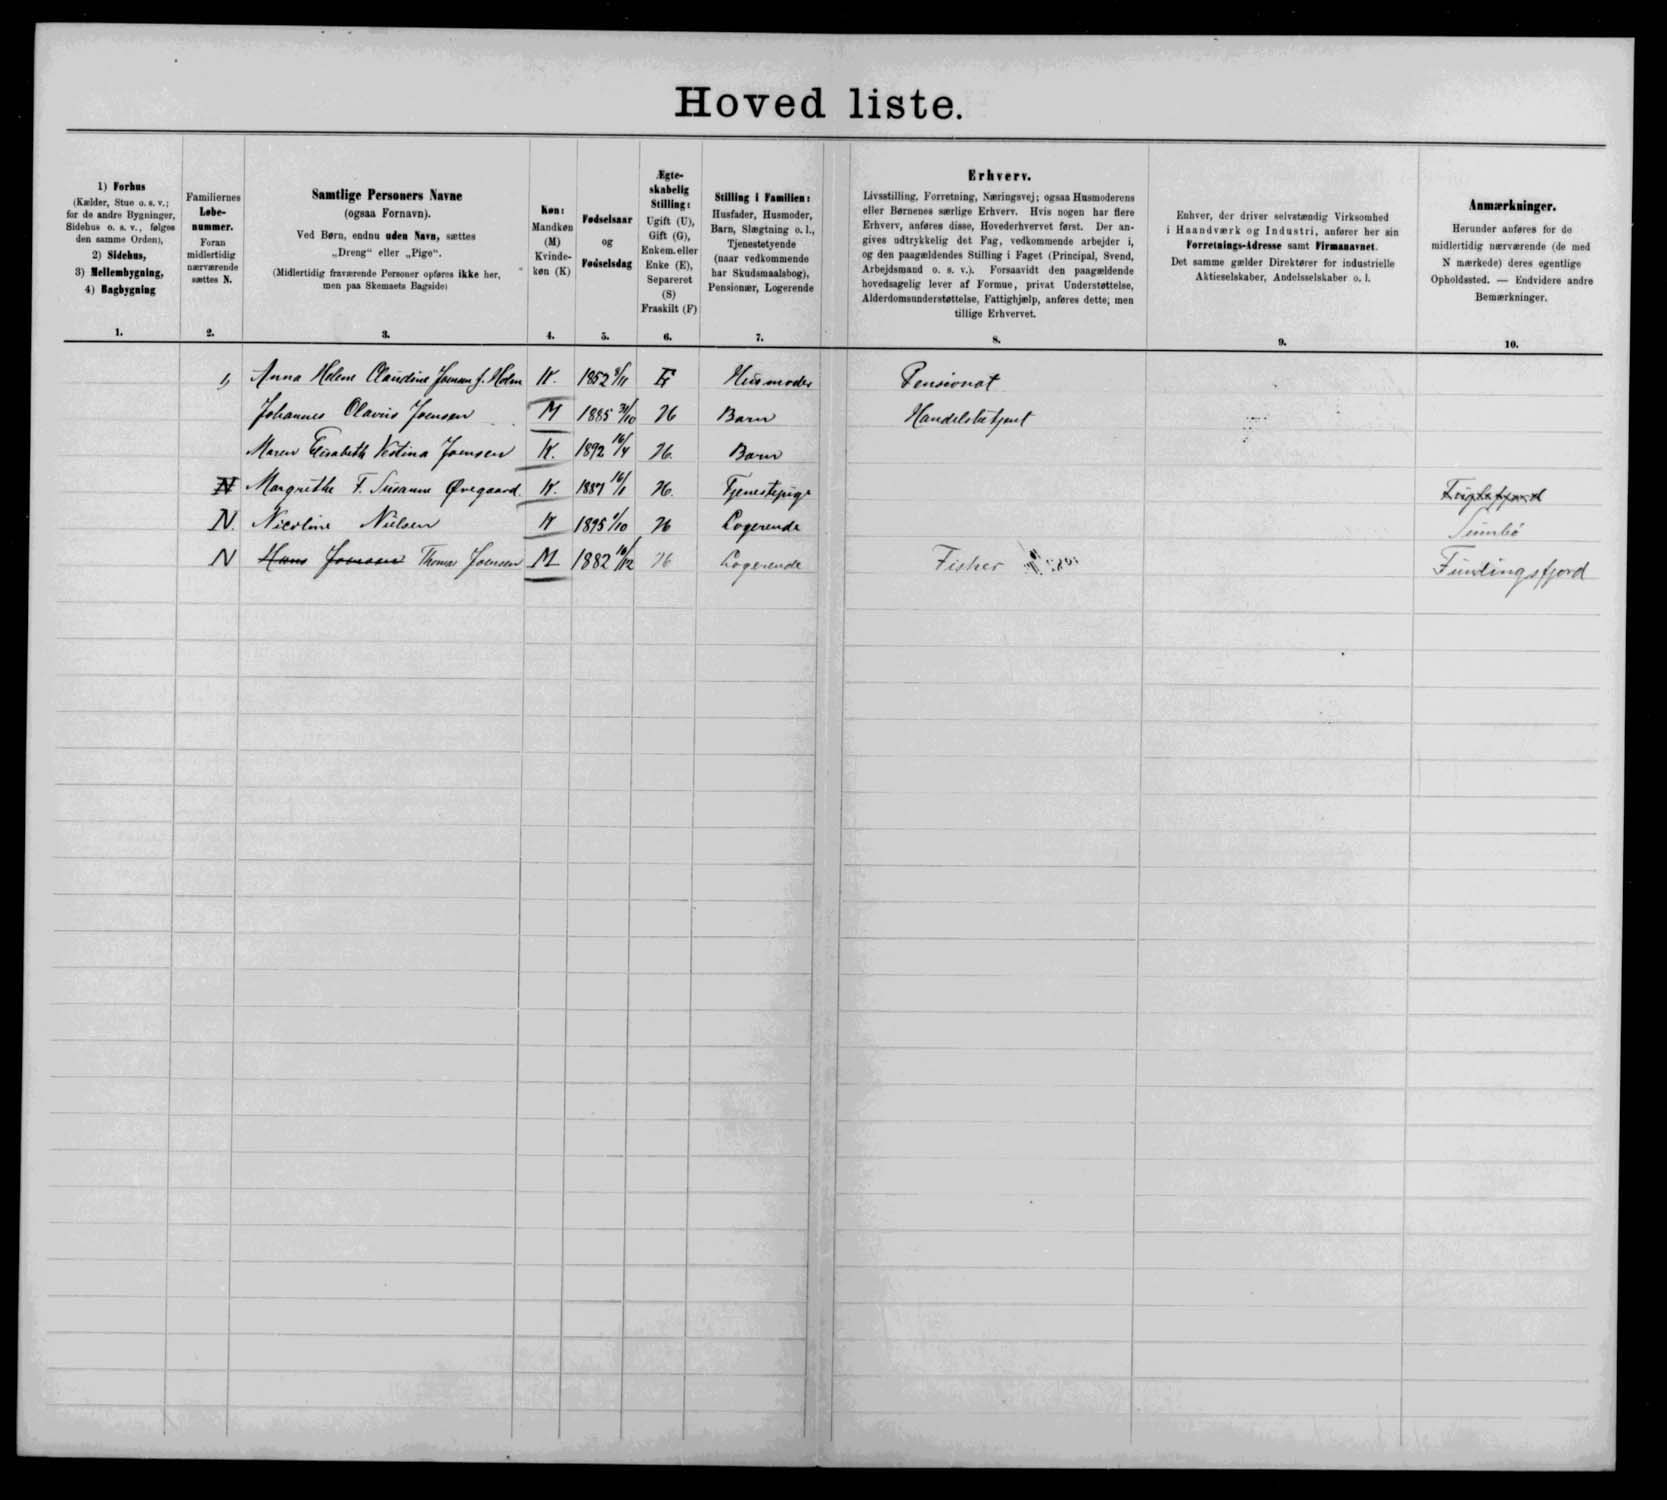 Hoved liste.
1) Forhus
(Kælder, Stue o. s. v.;
for de andre Bygninger,
Sidehus o. s. v., følges
den samme Orden),
2) Sidehus,
3) Mellembygning,
4) Bagbygning
1.
Familiernes
Løbe-
nummer.
Foran
midlertidig
nærværende
sættes N.
2.
Samtlige Personers Navne
(ogsaa Fornavn).
Ved Børn, endnu uden Navn, sættes
„Dreng“ eller „Pige“.
(Midlertidig fraværende Personer opføres ikke her,
men paa Skemaets Bagside)
3.
Køn:
Mandkøn
(M)
Kvinde-
køn (K)
4.
Fødselsaar
og
Fødselsdag
5.
Ægte-
skabelig
Stilling:
Ugift (U),
Gift (G),
Enkem. eller
Enke (E),
Separeret
(S)
Fraskilt (F)
6.
Stilling i Familien:
Husfader, Husmoder,
Barn, Slægtning o. l.,
Tjenestetyende
(naar vedkommende
har Skudsmaalsbog),
Pensionær, Logerende
7.
Erhverv.
Livsstilling, Forretning, Næringsvej; ogsaa Husmoderens
eller Børnenes særlige Erhverv. Hvis nogen har flere
Erhverv, anføres disse, Hovederhvervet først. Der an-
gives udtrykkelig det Fag, vedkommende arbejder i,
og den paagældendes Stilling i Faget (Principal, Svend,
Arbejdsmand o. s. v.). Forsaavidt den paagældende
hovedsagelig lever af Formue, privat Understøttelse,
Alderdomsunderstøttelse, Fattighjælp, anføres dette; men
tillige Erhvervet.
8.
Enhver, der driver selvstændig Virksomhed
i Haandværk og Industri, anfører her sin
Forretnings-Adresse samt Firmanavnet.
Det samme gælder Direktører for industrielle
Aktieselskaber, Andelsselskaber o. l.
9.
Anmærkninger.
Herunder anføres for de
midlertidig nærværende (de med
N mærkede) deres egentlige
Opholdssted. — Endvidere andre
Bemærkninger.
10.
1, Anna Helene Claudine Joensen f. Holm K. 1852 Husmoder Pensionat
Johannes Olavus Joensen M 1885 31/10 U Barn Handelsbetjent
Maren Elisabeth Kestina Joensen K. 1892 16/4 U. Barn
N Margrethe F. Susanne Øregaard. K. 1887 U. Tjenestepige
N. Nicoline Nielsen K 1895 U Logerende Sumbø
N Hans Joensen Thomas Joensen M 1882 16/12 U Logerende Fisher Fundingsfjord